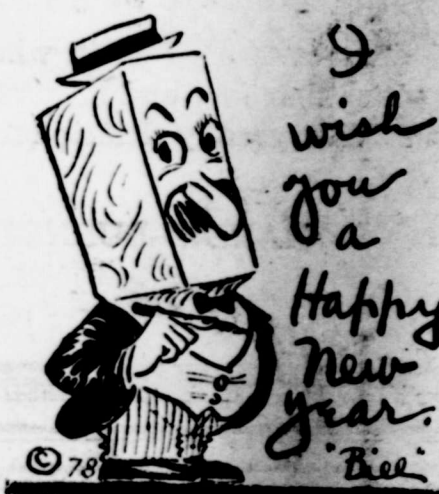 I
wish
you
a
Happy
New
Year.
"Bill"
© 78